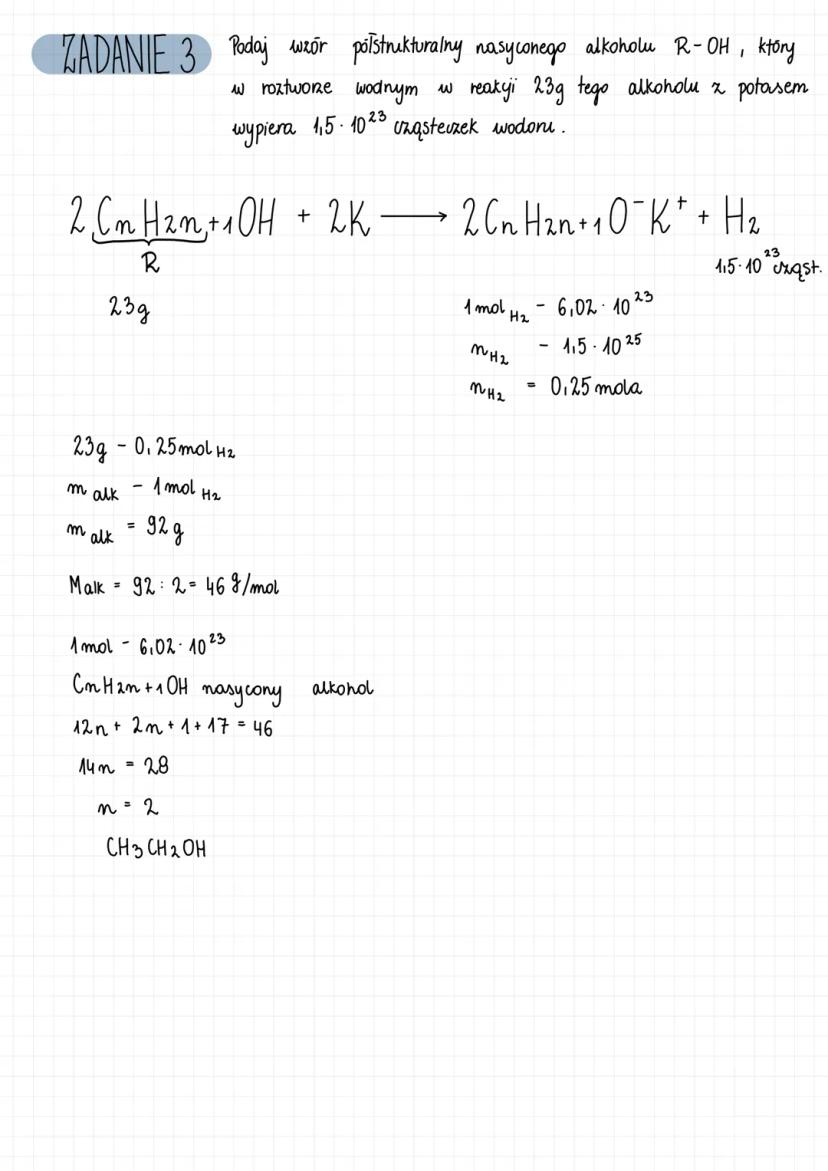 ZADANIE 3 Podaj wzór półstrukturalny nasyconego alkoholu R-OH, który
w roztworze wodnym w reakcji 23g tego alkoholu z potasem
wypiera 1,5 · 10²³ cząsteczek wodoru.
2 CnH2n+1OH + 2K → 2CnH2n+1O⁻K⁺ + H2
R
1,5·10²³ cząst.
23g
1 mol H2 – 6,02 · 10²³
nH2 – 1,5 · 10²⁵
nH2 = 0,25 mola
23g – 0,25 mol H2
m alk – 1 mol H2
m alk = 92 g
Malk = 92 : 2 = 46 g/mol
1 mol – 6,02 · 10²³
CnH2n+1OH nasycony alkohol
12n + 2n + 1 + 17 = 46
14n = 28
n = 2
CH3CH2OH